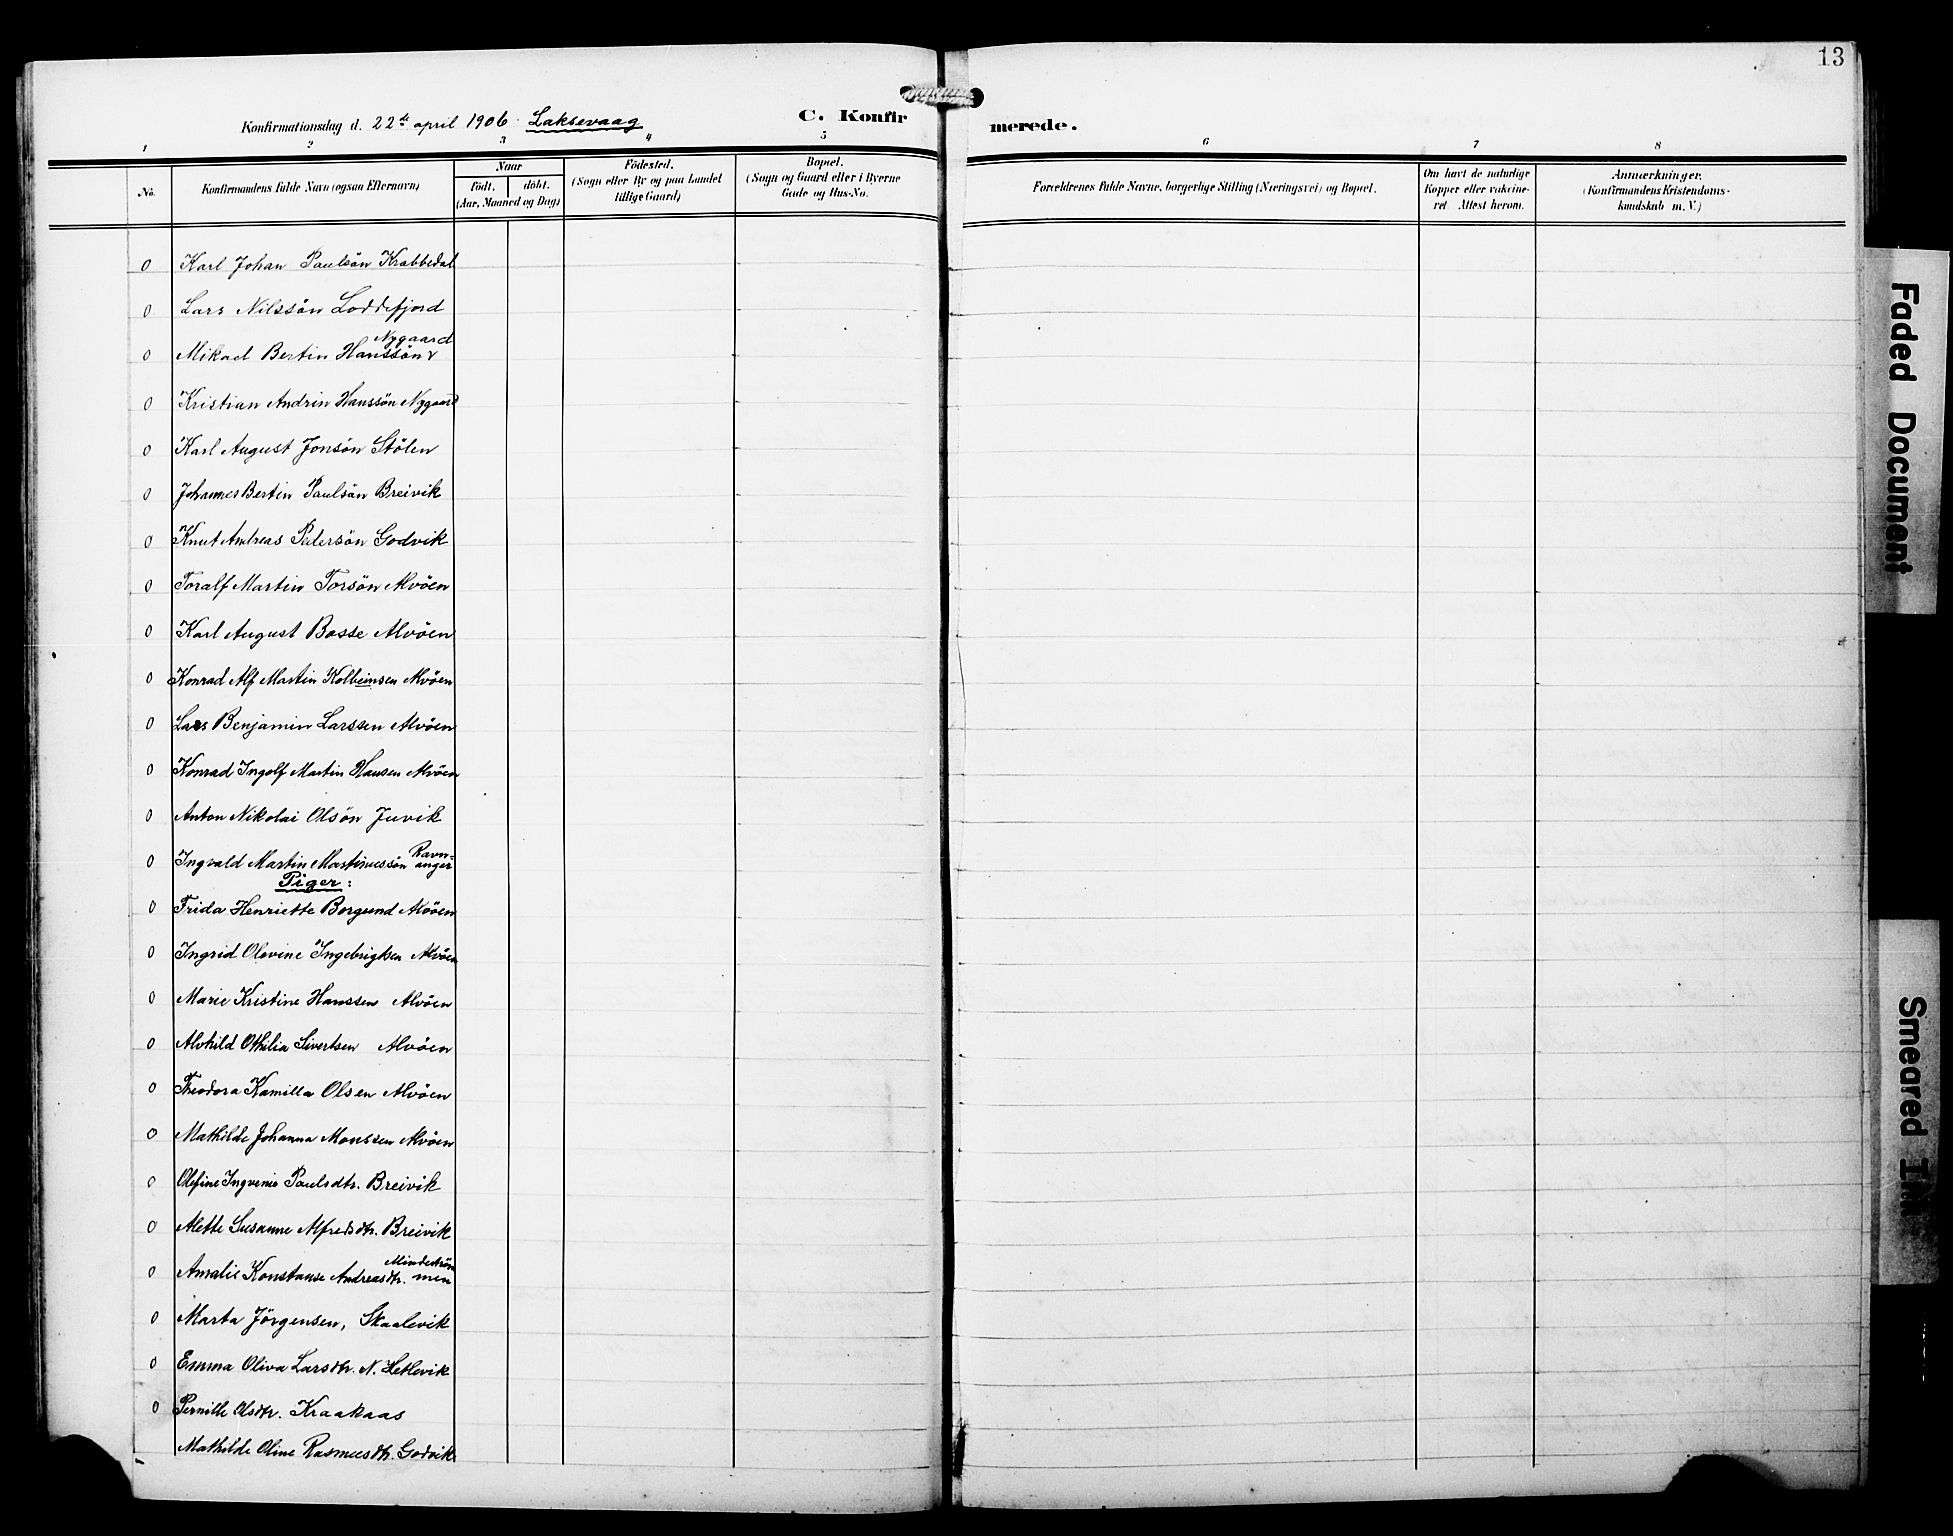 13
Konfirmationsdag d. 22de april 1906. Laksevaag
C. Konfirmerede.
1 2 3 4 5 6 7 8
No.
Konfirmandens fulde Navn (ogsaa Efternavn)
Naar
født. døbt.
(Aar, Maaned og Dag)
Fødested.
(Sogn eller By og paa Landet
tillige Gaard)
Bopæl.
(Sogn og Gaard eller i Byerne
Gade og Hus-No.
Forældrenes fulde Navne, borgerlige Stilling (Næringsvei) og Bopæl.
Om havt de naturlige
Kopper eller vakcine-
ret. Attest herom.
Anmærkninger.
(Konfirmandens Kristendoms-
kundskab m. V.)
0 Karl Johan Paulsön Krabbedal
0 Lars Nilssön Loddefjord
Nygaard
0 Mikael Bertin Hanssön
0 Kristian Andrin Hanssön Nygaard
0 Karl August Jonsön Stölen
0 Johannes Bertin Paulsön Breivik
0 Knut Andreas Petersön Godvik
0 Toralf Martin Torsön Alvöen
0 Karl August Bosse Alvöen
0 Konrad Alf Martin Kolbeinsen Alvöen
0 Lars Benjamin Larssen Alvöen
0 Konrad Ingolf Martin Hansen Alvöen
0 Anton Nikolai Olsön Juvik
0 Ingvald Martin Martinussön Ravn-
anger
Piger:
0 Frida Henriette Borgund Alvöen
0 Ingrid Olevine Ingebrigtsen Alvöen
0 Marie Kristine Hanssen Alvöen
0 Alvhild Othilia Sivertsen Alvöen
0 Theodora Kamilla Olsen Alvöen
0 Mathilde Johanna Monssen Alvöen
0 Olefine Ingvenie Paulsdtr. Breivik
0 Alette Susanne Alfredsdtr. Breivik
Mindeström
0 Amalie Konstanse Andreasdtr. men
0 Marta Jörgensen, Skaalevik
0 Emma Oliva Larsdtr. N. Hetlevik
0 Pernille Olsdtr. Kraakaas
Mathilde Oline Rasmusdtr. Godvik
Faded Document
Smeared Ink